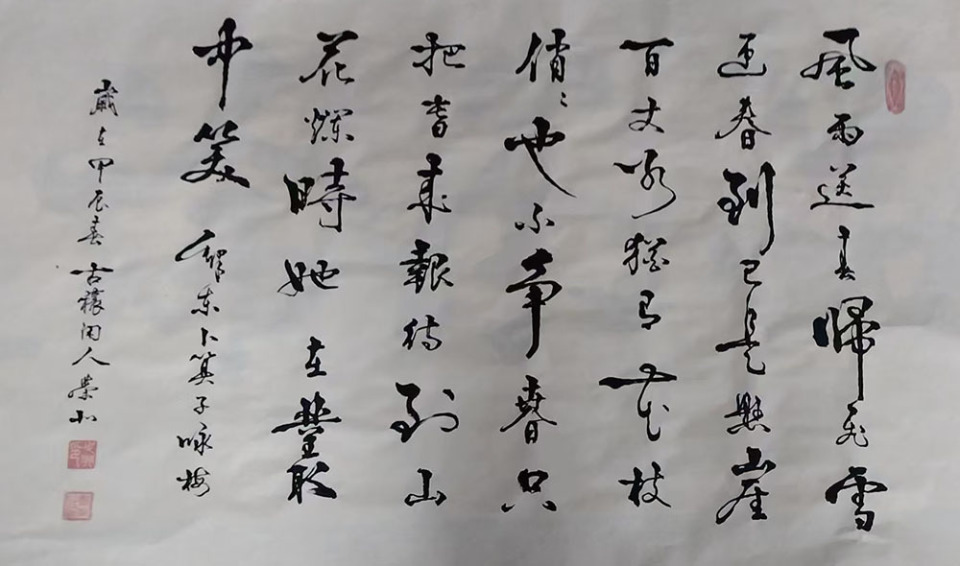 風雨送春歸飛雪
迎春到已是懸崖
百丈冰猶有花枝
俏〻也不爭春只
把春來報待到山
花爛時她在叢
中笑 東卜算子咏梅
歲在甲辰春古穰閑人